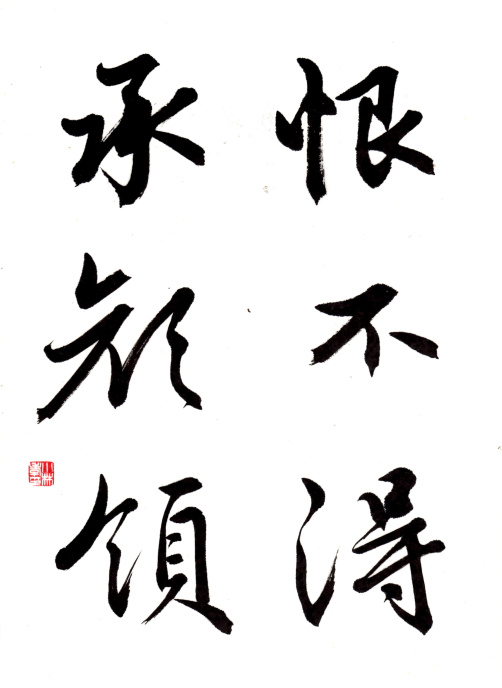 恨不得
承顔領